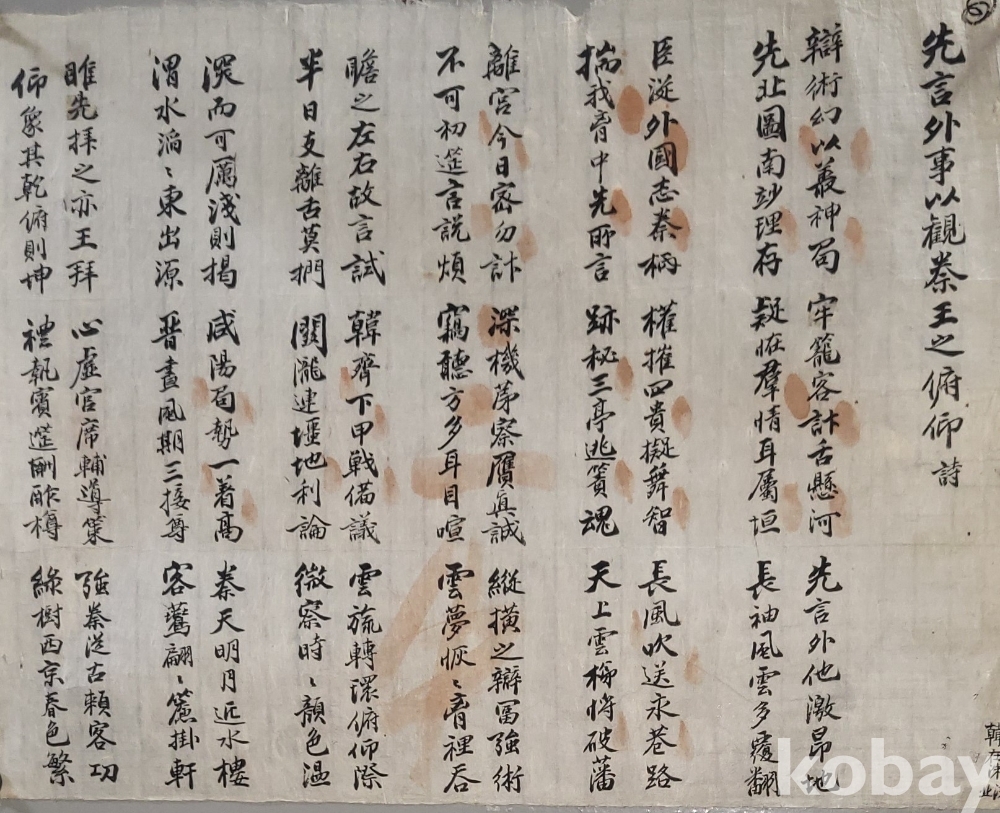 先言外事以觀秦王之俯仰詩
辯術幻以叢神蜀 牢籠客計舌懸河 先言外他激昂地
先北圖南竗理存 疑恠羣情耳屬垣 長袖風雲多覆翻
臣從外國志秦柄 權摧四貴擬舞智 長風吹送永巷路
揣我胷中先所言 跡秘三亭逃簀魂 天上雲梯將破藩
離宮今日密勿計 深機茅察贋眞誠 縱橫之辯冨強術
不可初筵言說煩 竊聽方多耳目喧 雲夢恢〻胷裡呑
瞻之左右故言試 韓齊下甲戰備議 雲旒轉環俯仰際
半日支離舌莫捫 關隴連壃地利論 微察時〻顔色溫
深而可厲淺則揭 咸陽蜀勢一着高 秦天明月近水樓
渭水滔〻東出源 晋畫風期三接尊 客鶯翩〻簾掛軒
睢先拜之亦王拜 心虛官席輔導策 強秦從古賴客功
仰象其乾俯則坤 禮執賓筵酬酢樽 綠樹西京春色繁
kobay